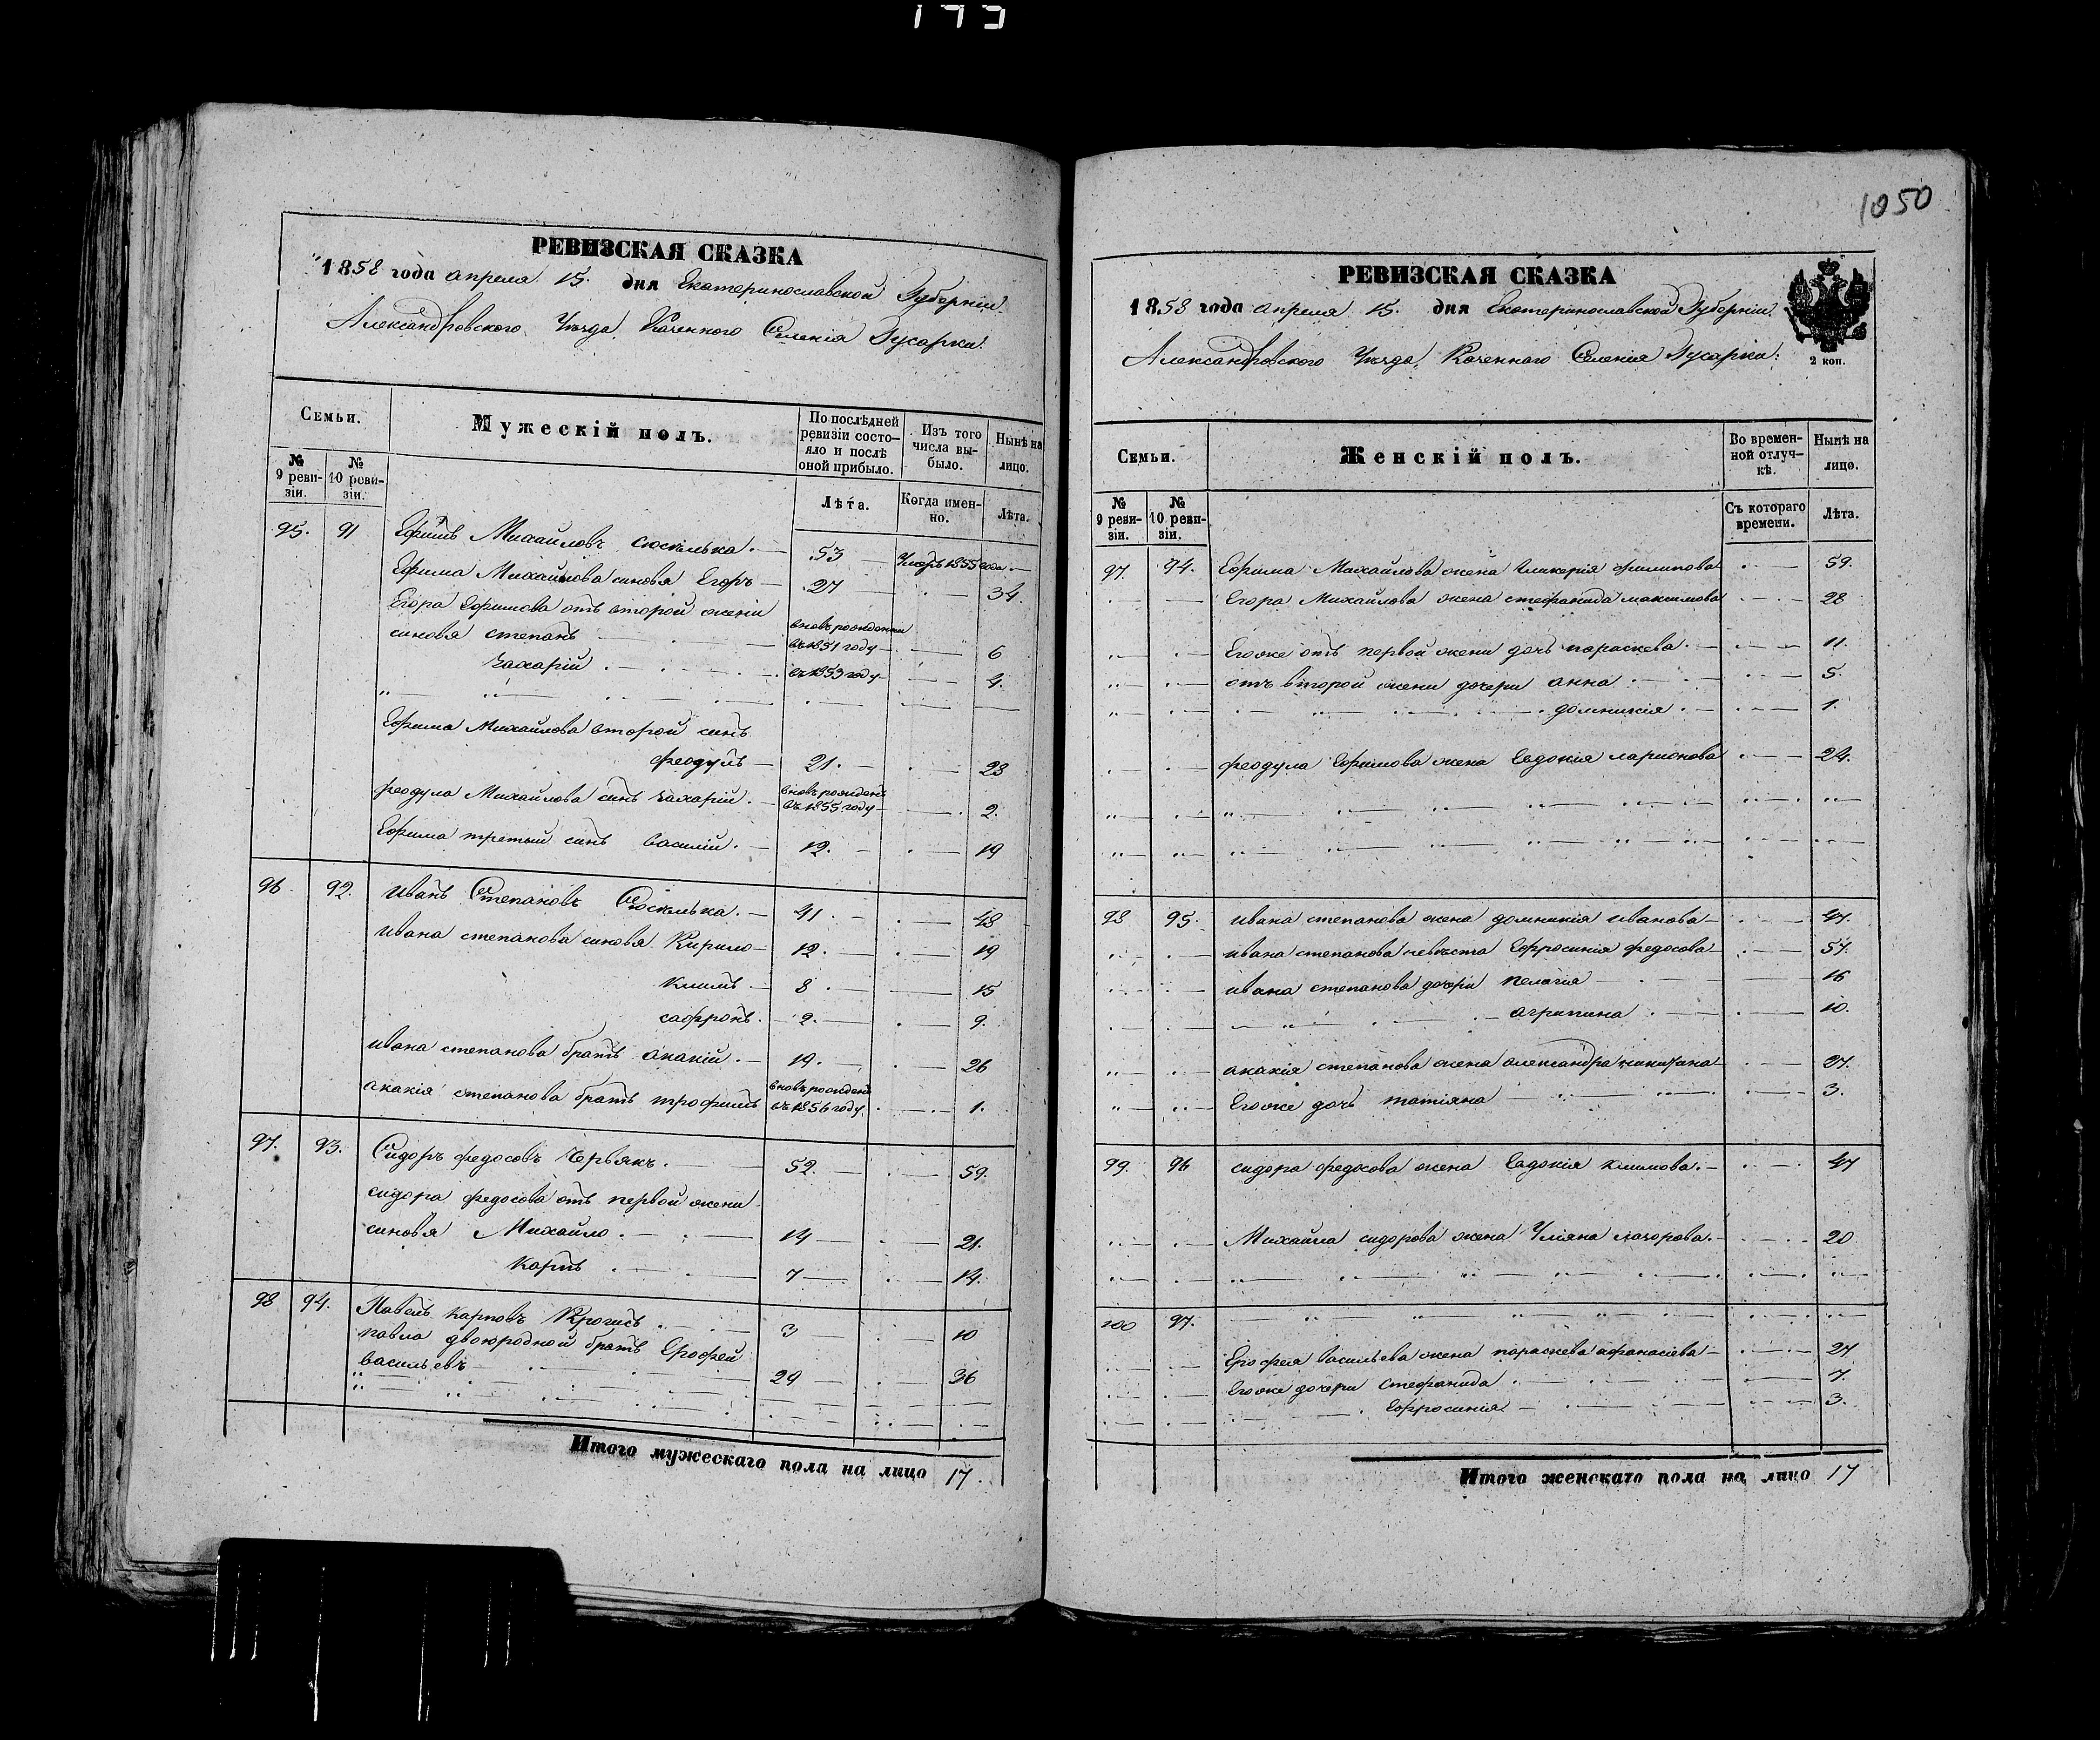 173
РЕВИЗСКАЯ СКАЗКА
1858 года апреля 15. дня Екатеринославской Губерніи.
Александровского Уѣзда, Казенного Селенія Гусарки.
Семьи.
Мужескій полъ.
По послѣдней ревизіи состояло и послѣ оной прибыло.
Изъ того числа выбыло.
Нынѣ на лицо.
№ 9 ревизіи.
№ 10 ревизіи.
Лѣта.
Когда именно.
Лѣта.
95. 91 Ефимъ Михайловъ 53 Умеръ 1855 года.
Ефима Михайлова синовя Егоръ 27 34.
Егора Ефимова отъ второй жени
синовя степанъ вновь рожденни въ 1851 году 6
Захарій въ 1853 году 4.
Ефима Михайлова второй синъ
феодулъ 21. 28
феодула Михайлова синъ Захарій. вновь рожденъ въ 1855 году 2.
Ефима третий синъ василій. 12. 19
96 92. Иванъ Степановъ 41. 48
Ивана степанова синовя Кирило 12. 19
Климъ 8 15
сафронъ. 2. 9.
Ивана степанова братъ акакій. 19. 26
акакія степанова братъ трофимъ вновь рожденъ въ 1856 году. 1.
97. 93. Сидоръ федосовъ Червякъ. 52. 59.
сидора федосова отъ первой жени
синовя Михайло. 14 21.
Карпъ 7 14.
98 94. Павелъ карповъ 3 10
павла двоюродной братъ Ерофей
васильевъ 29 36
Итого мужескаго пола на лицо 17.
1050
РЕВИЗСКАЯ СКАЗКА
1858 года апреля 15. дня Екатеринославской Губерніи.
Александровского Уѣзда, Казеннаго Селенія Гусарки.
2 коп.
Семьи.
Женскій полъ.
Во временной отлучкѣ.
Нынѣ на лицо.
№ 9 ревизіи.
№ 10 ревизіи.
Съ котораго времени.
Лѣта.
97. 94. Ефима Михайлова жена гликерія филипова 59.
Егора Михайлова жена стефанида максимова 28
Егоже отъ первой жени дочь параскева. 11.
отъ второй жени дочери анна 5.
домникія. 1.
феодула Ефимова жена Евдокія ларионова 24.
98 95. Ивана степанова жена домникія Иванова 47.
Ивана степанова невѣста Ефросинія федосова 57.
Ивана степанова дочери пелагія 16
агрипина 10.
акакія степанова жена александра 27.
Егоже дочь татіяна 3.
99. 96 сидора федосова жена Евдокія климова. 47
Михайла сидорова жена Уліяна 20
100 97.
Ерофея васильева жена параскева афанасіева 27
Егоже дочери стефанида 7.
Ефросинія 3.
Итого женскаго пола на лицо 17